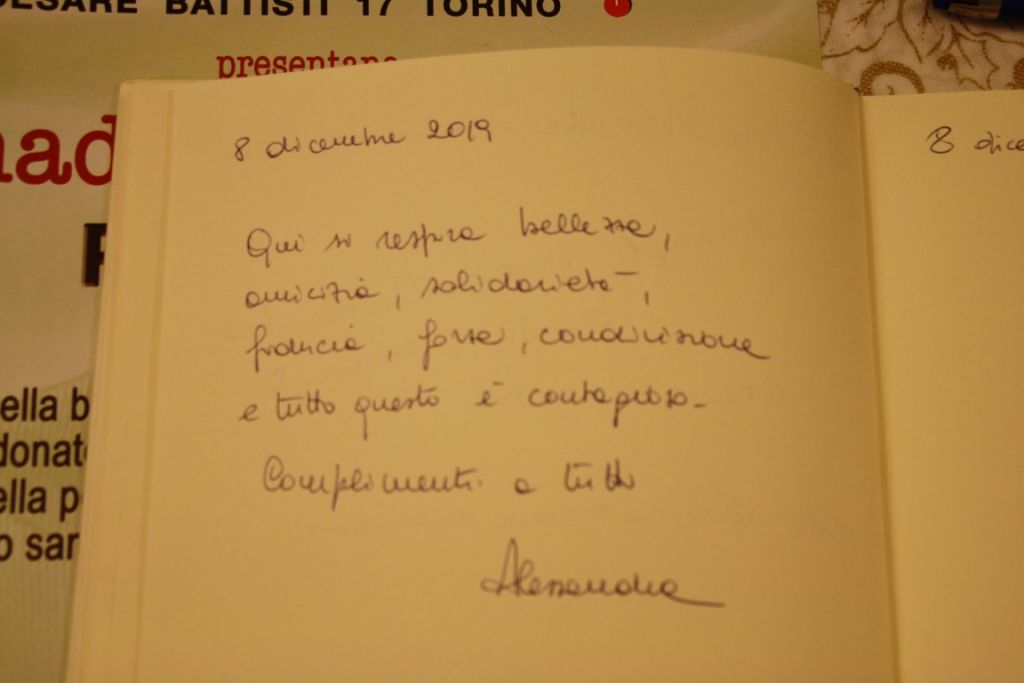 ESARE BATTISTI 17 TORINO
presentano
ad
8 dicembre 2019
8 dice
Qui si respira bellezza,
amicizia, solidarietà,
fiducia, forza, condivisione
e tutto questo è contagioso-
Complimenti a tutti
Alessandra
ella b
donat
ella p
o sar